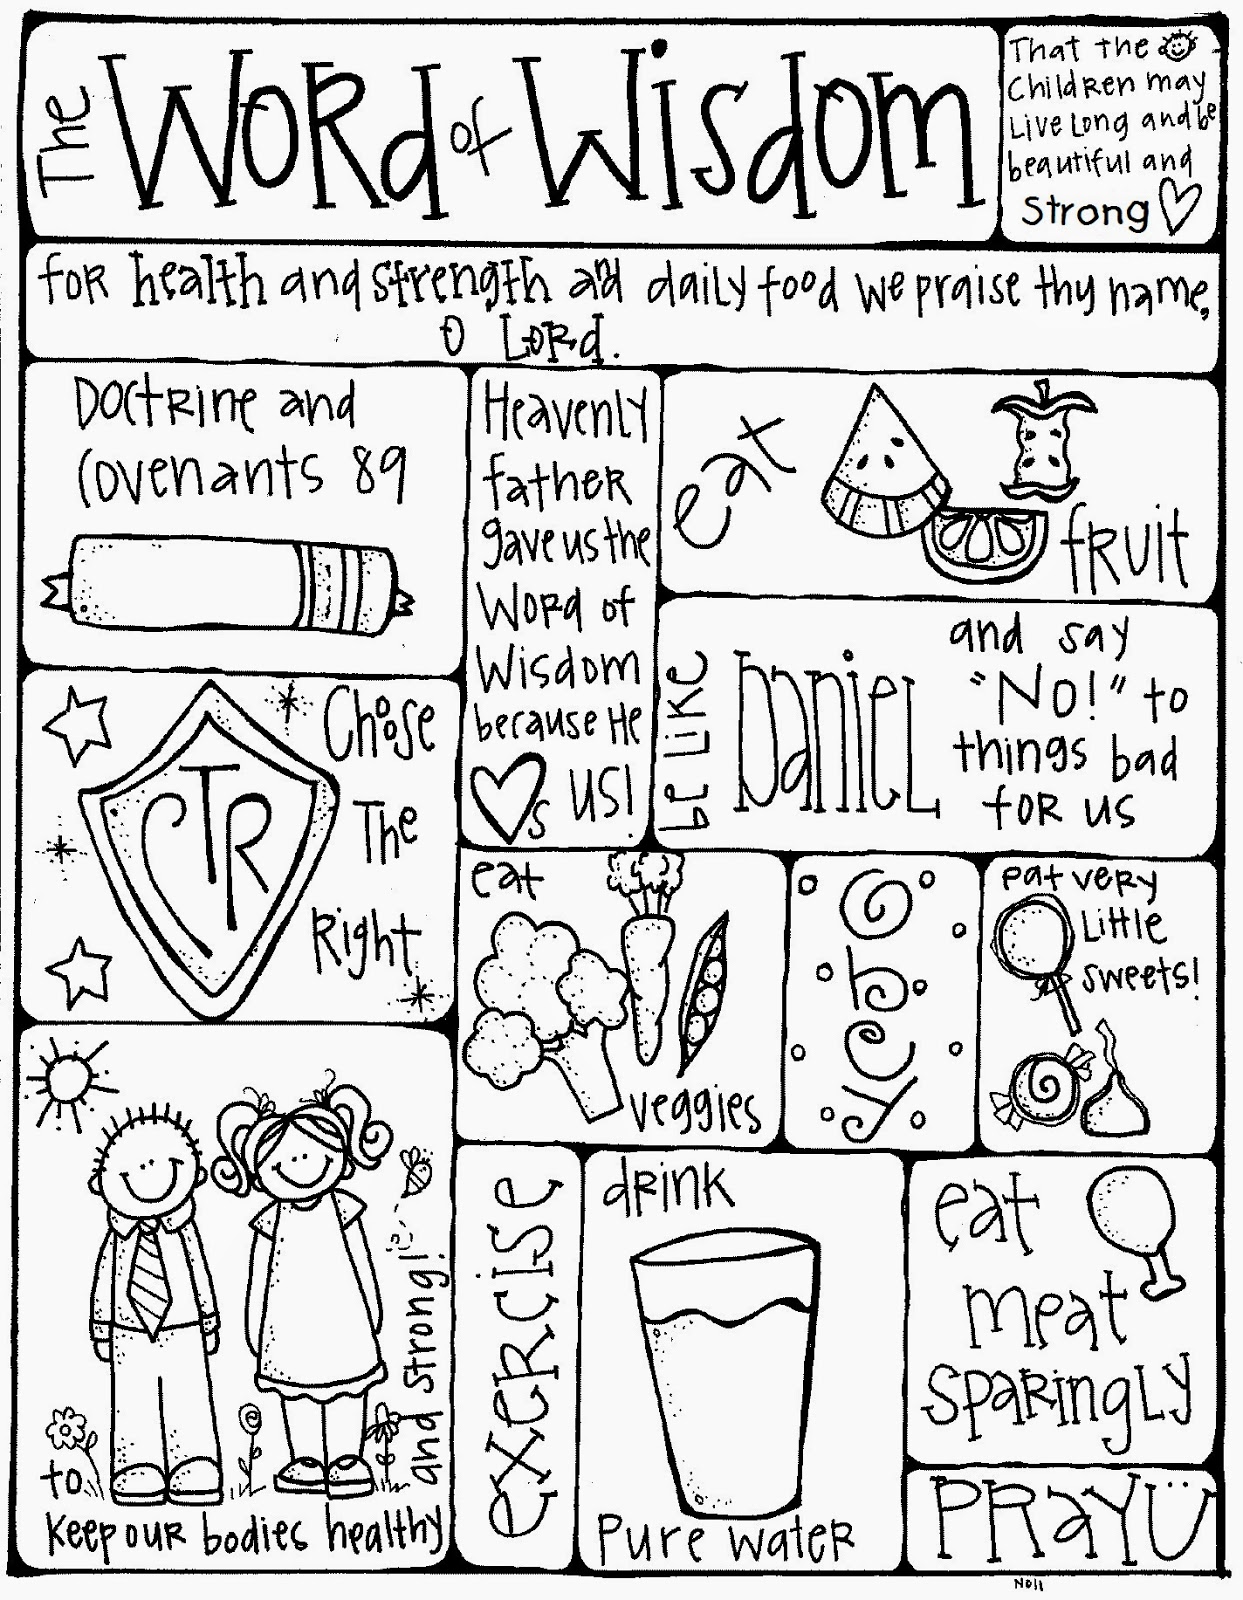 The Word of Wisdom
That the
Children may
Live Long and be
beautiful and
Strong
for health and strength and daily food we praise thy name,
O Lord.
Doctrine and
Covenants 89
Heavenly
father
gave us the
Word of
Wisdom
because He
s us!
eat
fruit
be like
Daniel
and say
"No!" to
things bad
for us
Choose
The
Right
CTR
eat
veggies
yoga
eat very
Little
sweets!
to
keep our bodies healthy
and strong!
exercise
drink
Pure water
eat
meat
sparingly
PRaY
N011